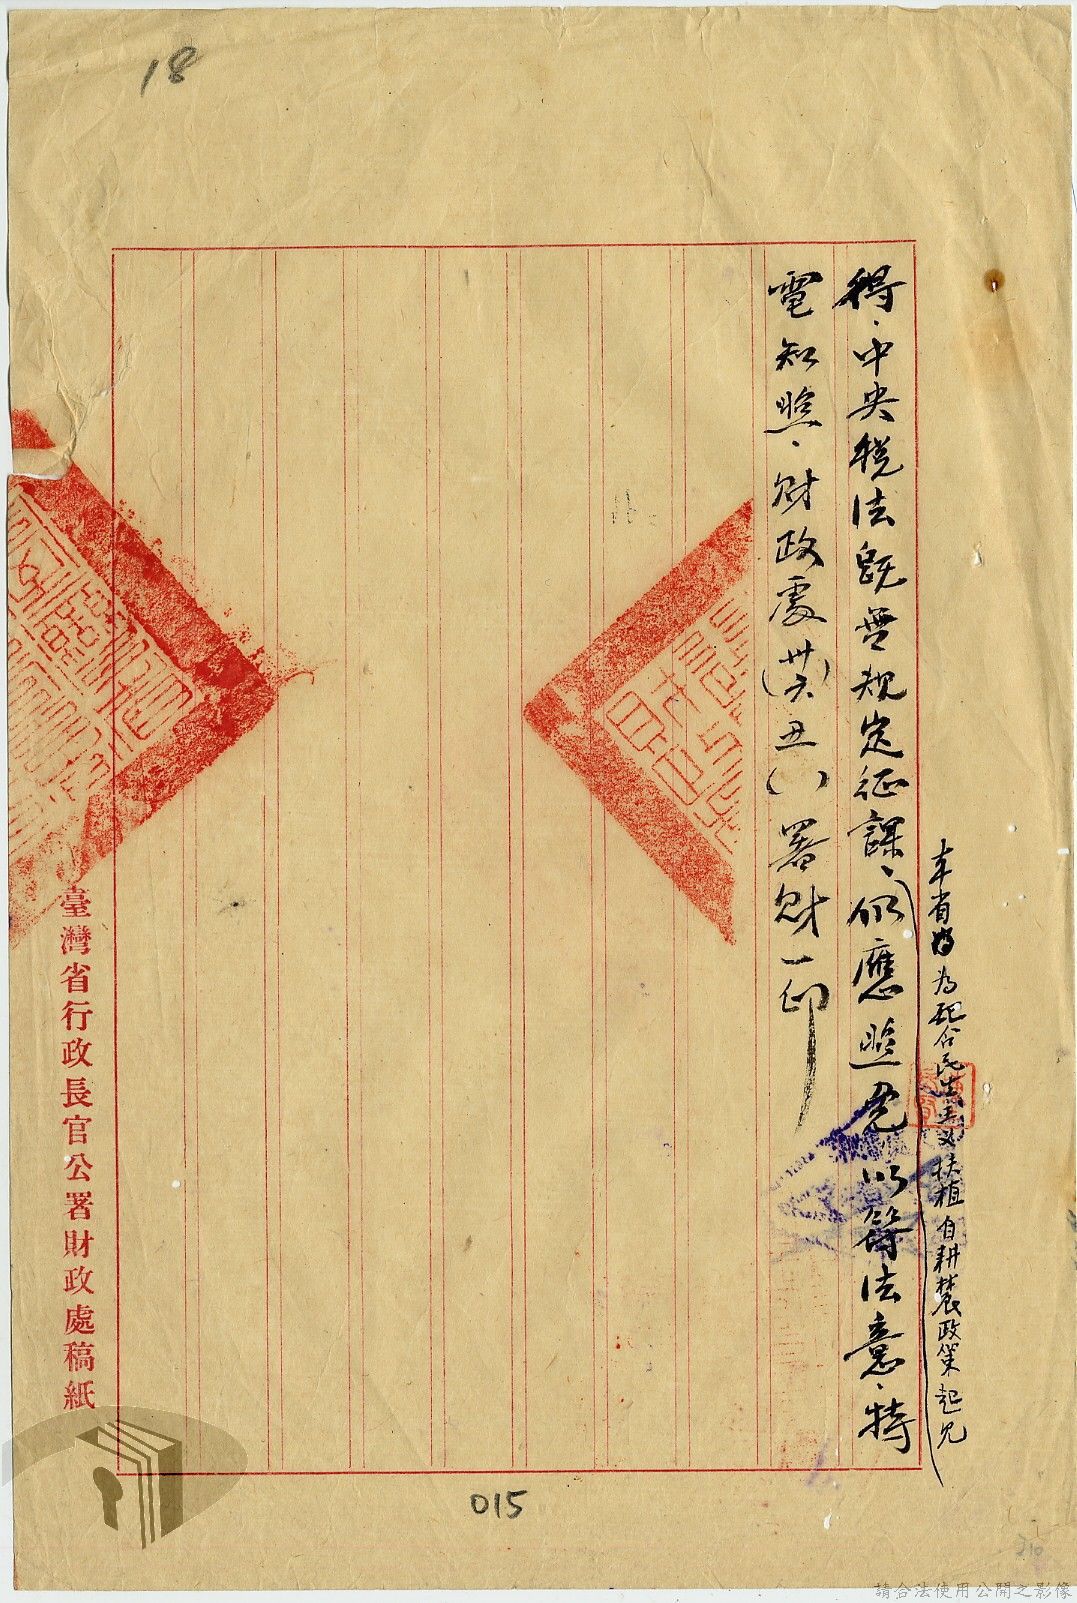 18
本省為配合民生主義扶植自耕農政策起見
得、中央稅法既無規定征課、仍應照免以符法意、特
電知照、財政處(卅六)丑( )署財一印
臺灣省行政長官公署財政處稿紙
015
210
請合法使用公開之影像